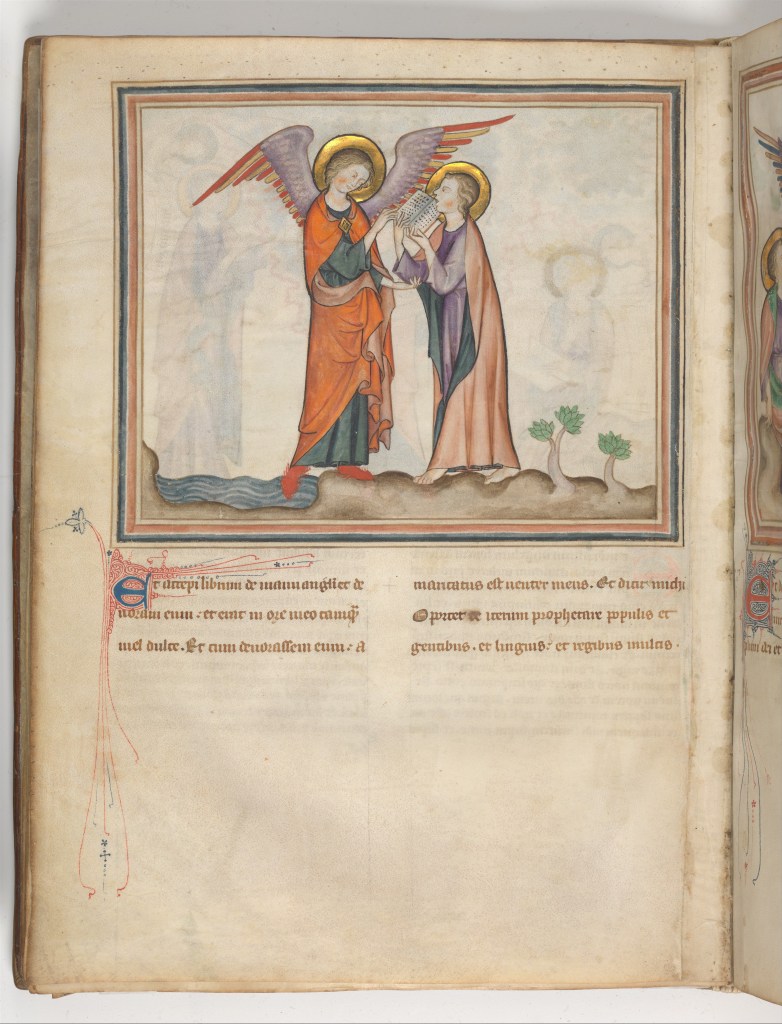 Et accepi librum de manu angli et de
uoraui eum : et erat in ore meo tamqͣ
mel dulce . Et cum deuorassem eum : a
maricatus est uenter meus . Et dicit michi
Oportet te iterum prophetare populis et
gentibus . et linguis : et regibus multis .